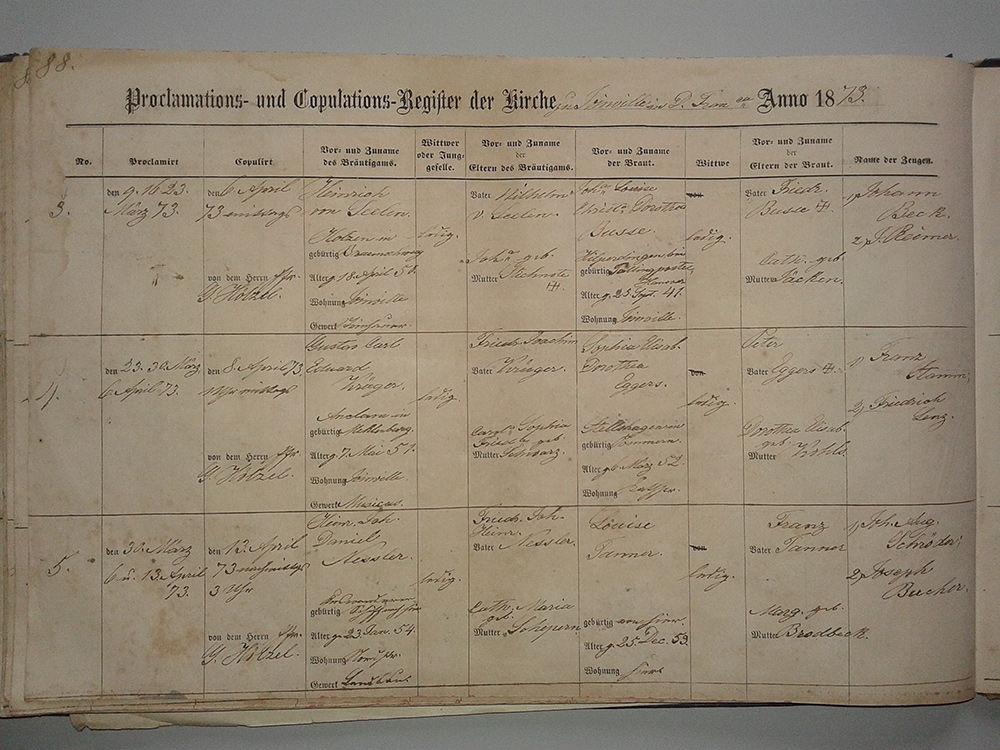 88.
Proclamations- und Copulations-Register der Kirche zu Joinville in D. Anno 1873.
No.
Proclamirt
Copulirt
Vor- und Zuname
des Bräutigams.
Wittwer
oder Jung-
geselle.
Vor- und Zuname
der
Eltern des Bräutigams.
Vor- und Zuname
der Braut.
Wittwe
Vor- und Zuname
der
Eltern der Braut.
Name der Zeugen.
3.
den 9. 16. 23.
März 73.
den 6. April
73 mittags
von dem Herrn Pfr.
G. Hölzel.
Heinrich
von Seelen.
Holzen in
gebürtig Braunschweig
Alter g. 18 April 51.
Wohnung Joinville
Gewerk
ledig.
Vater Wilhelm
v. Seelen.
Joh. geb.
Mutter
Joh. Louise
Dorothea
Busse.
gebürtig
Hannover
Alter g. 25. Sept. 41.
Wohnung Joinville.
von
ledig.
Vater Friedr.
Busse
Cath. geb.
Mutter Päcken.
1, Johann
Beck.
2, J. Reimer.
4.
den 23. 30. März
6 April 73.
den 8. April 73
mittags
von dem Herrn Pfr.
G. Hölzel.
Gustav Carl
Eduard
Krüger.
Anclam in
gebürtig Meklenberg.
Alter g. 7. Mai 51.
Wohnung Joinville.
Gewerk Musicus.
ledig.
Friedr. Joachim
Vater Krüger.
Carol. Sophia
Fried. geb.
Mutter Schwarz.
Sophia Elisab.
Dorothea
Eggers.
Stellshagen in
gebürtig Pommern.
Alter g. 6. März 52.
Wohnung
von
ledig.
Peter
Vater Eggers
Dorothea Elisab.
geb.
Mutter
1, Franz
Stamm.
2, Friedrich
Lenz.
5.
den 30. März
6 u. 13. April
73.
den 13. April
73 nachmittags
3 Uhr
von dem Herrn Pfr.
G. Hölzel.
Heinr. Joh.
Daniel
Nessler.
gebürtig
Alter g. 23 Jan. 54.
Wohnung
Gewerk Landbau.
ledig.
Friedr. Joh.
Heinr.
Vater Nessler.
Cath. Maria
geb.
Mutter
Louise
Tanner.
gebürtig von hier.
Alter g. 25. Dec. 53.
Wohnung hier
von
ledig.
Franz
Vater Tanner
Marg. geb.
Mutter Brodbeck.
1, Joh. Aug.
Schröder.
2, Joseph
Bucher.